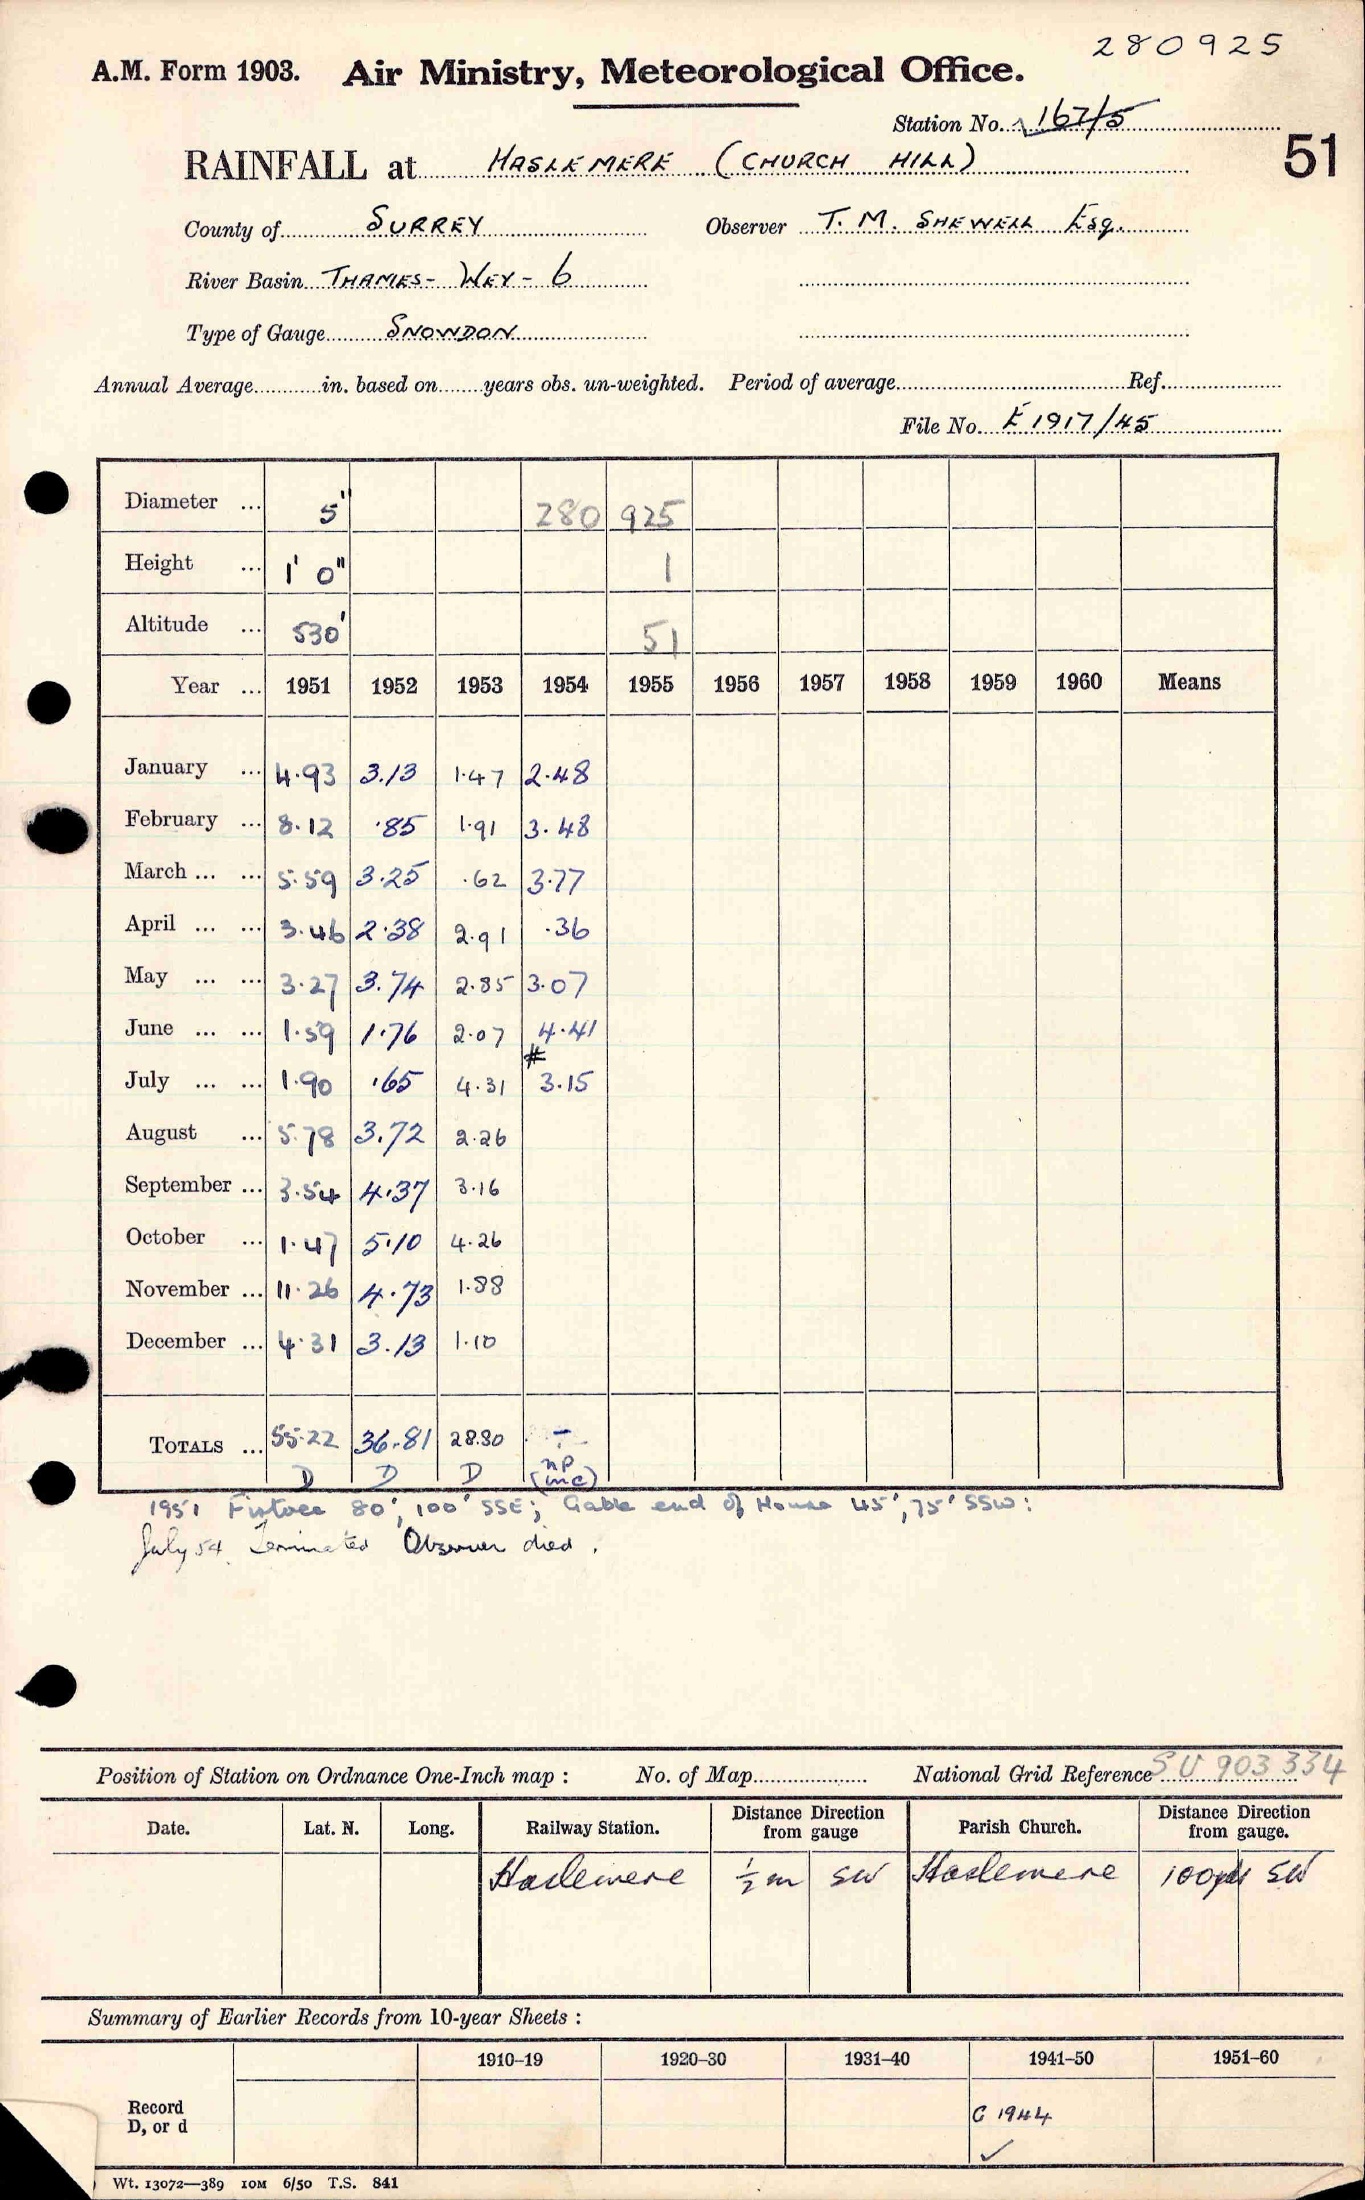 280925
A.M. Form 1903. Air Ministry, Meteorological Office.
Station No. 167/5
51
RAINFALL at HASLEMERE (CHURCH HILL)
County of SURREY Observer T. M. SHEWELL Esq.
River Basin THAMES - WEY - 6
Type of Gauge SNOWDON
Annual Average in. based on years obs. un-weighted. Period of average Ref.
File No. E 1917/45
Diameter ... 5" 280 925
Height ... 1' 0" 1
Altitude ... 530' 51
Year ... 1951 1952 1953 1954 1955 1956 1957 1958 1959 1960 Means
January ... 4.93 3.13 1.47 2.48
February ... 8.12 .85 1.91 3.48
March ... ... 5.59 3.25 .62 3.77
April ... ... 3.46 2.38 2.91 .36
May ... ... 3.27 3.74 2.85 3.07
June ... ... 1.59 1.76 2.07 4.41
#
July ... ... 1.90 .65 4.31 3.15
August ... 5.78 3.72 2.26
September ... 3.54 4.37 3.16
October ... 1.47 5.10 4.26
November ... 11.26 4.73 1.88
December ... 4.31 3.13 1.10
TOTALS ... 55.22 36.81 28.80 -
D D D np (inc)
1951 Firtree 80', 100' SSE; Gable end of House 45', 75' SSW:
July 54. Terminated Observer died.
Position of Station on Ordnance One-Inch map : No. of Map National Grid Reference SU 903 334
Date. Lat. N. Long. Railway Station. Distance Direction from gauge Parish Church. Distance Direction from gauge.
Haslemere ½ m SW Haslemere 100yds SW
Summary of Earlier Records from 10-year Sheets :
1910–19 1920–30 1931–40 1941–50 1951–60
Record
D, or d
C 1944
✓
Wt. 13072—389 10M 6/50 T.S. 841